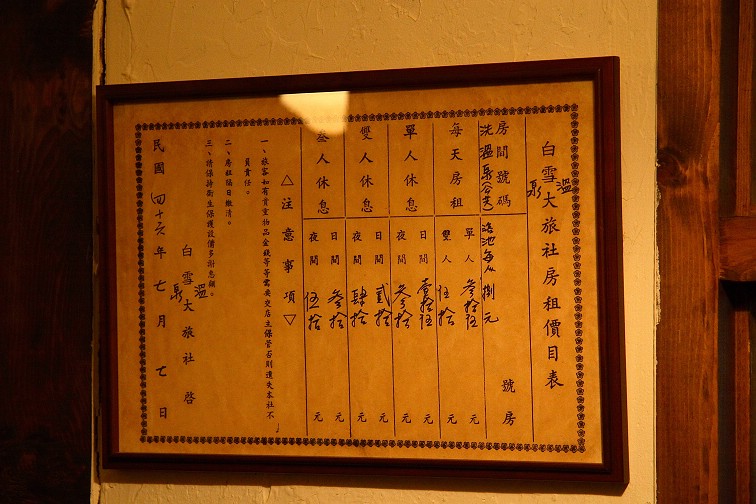 白雪溫泉大旅社房租價目表
房間號碼 號房
洗溫泉(公共) 浴池每人 捌元
每天房租
單人 叁拾伍 元
雙人 伍拾 元
單人休息
日間 壹拾伍 元
夜間 叁拾 元
雙人休息
日間 貳拾 元
夜間 肆拾 元
叁人休息
日間 叁拾 元
夜間 伍拾 元
△注意事項▽
一、旅客如有貴重物品金錢等等需要交店主保管否則遺失本社不
負責任。
二、房租日繳清。
三、請保持衛生保護設備多謝惠顧。
白雪溫泉大旅社 啓
民國四十六年七月七日